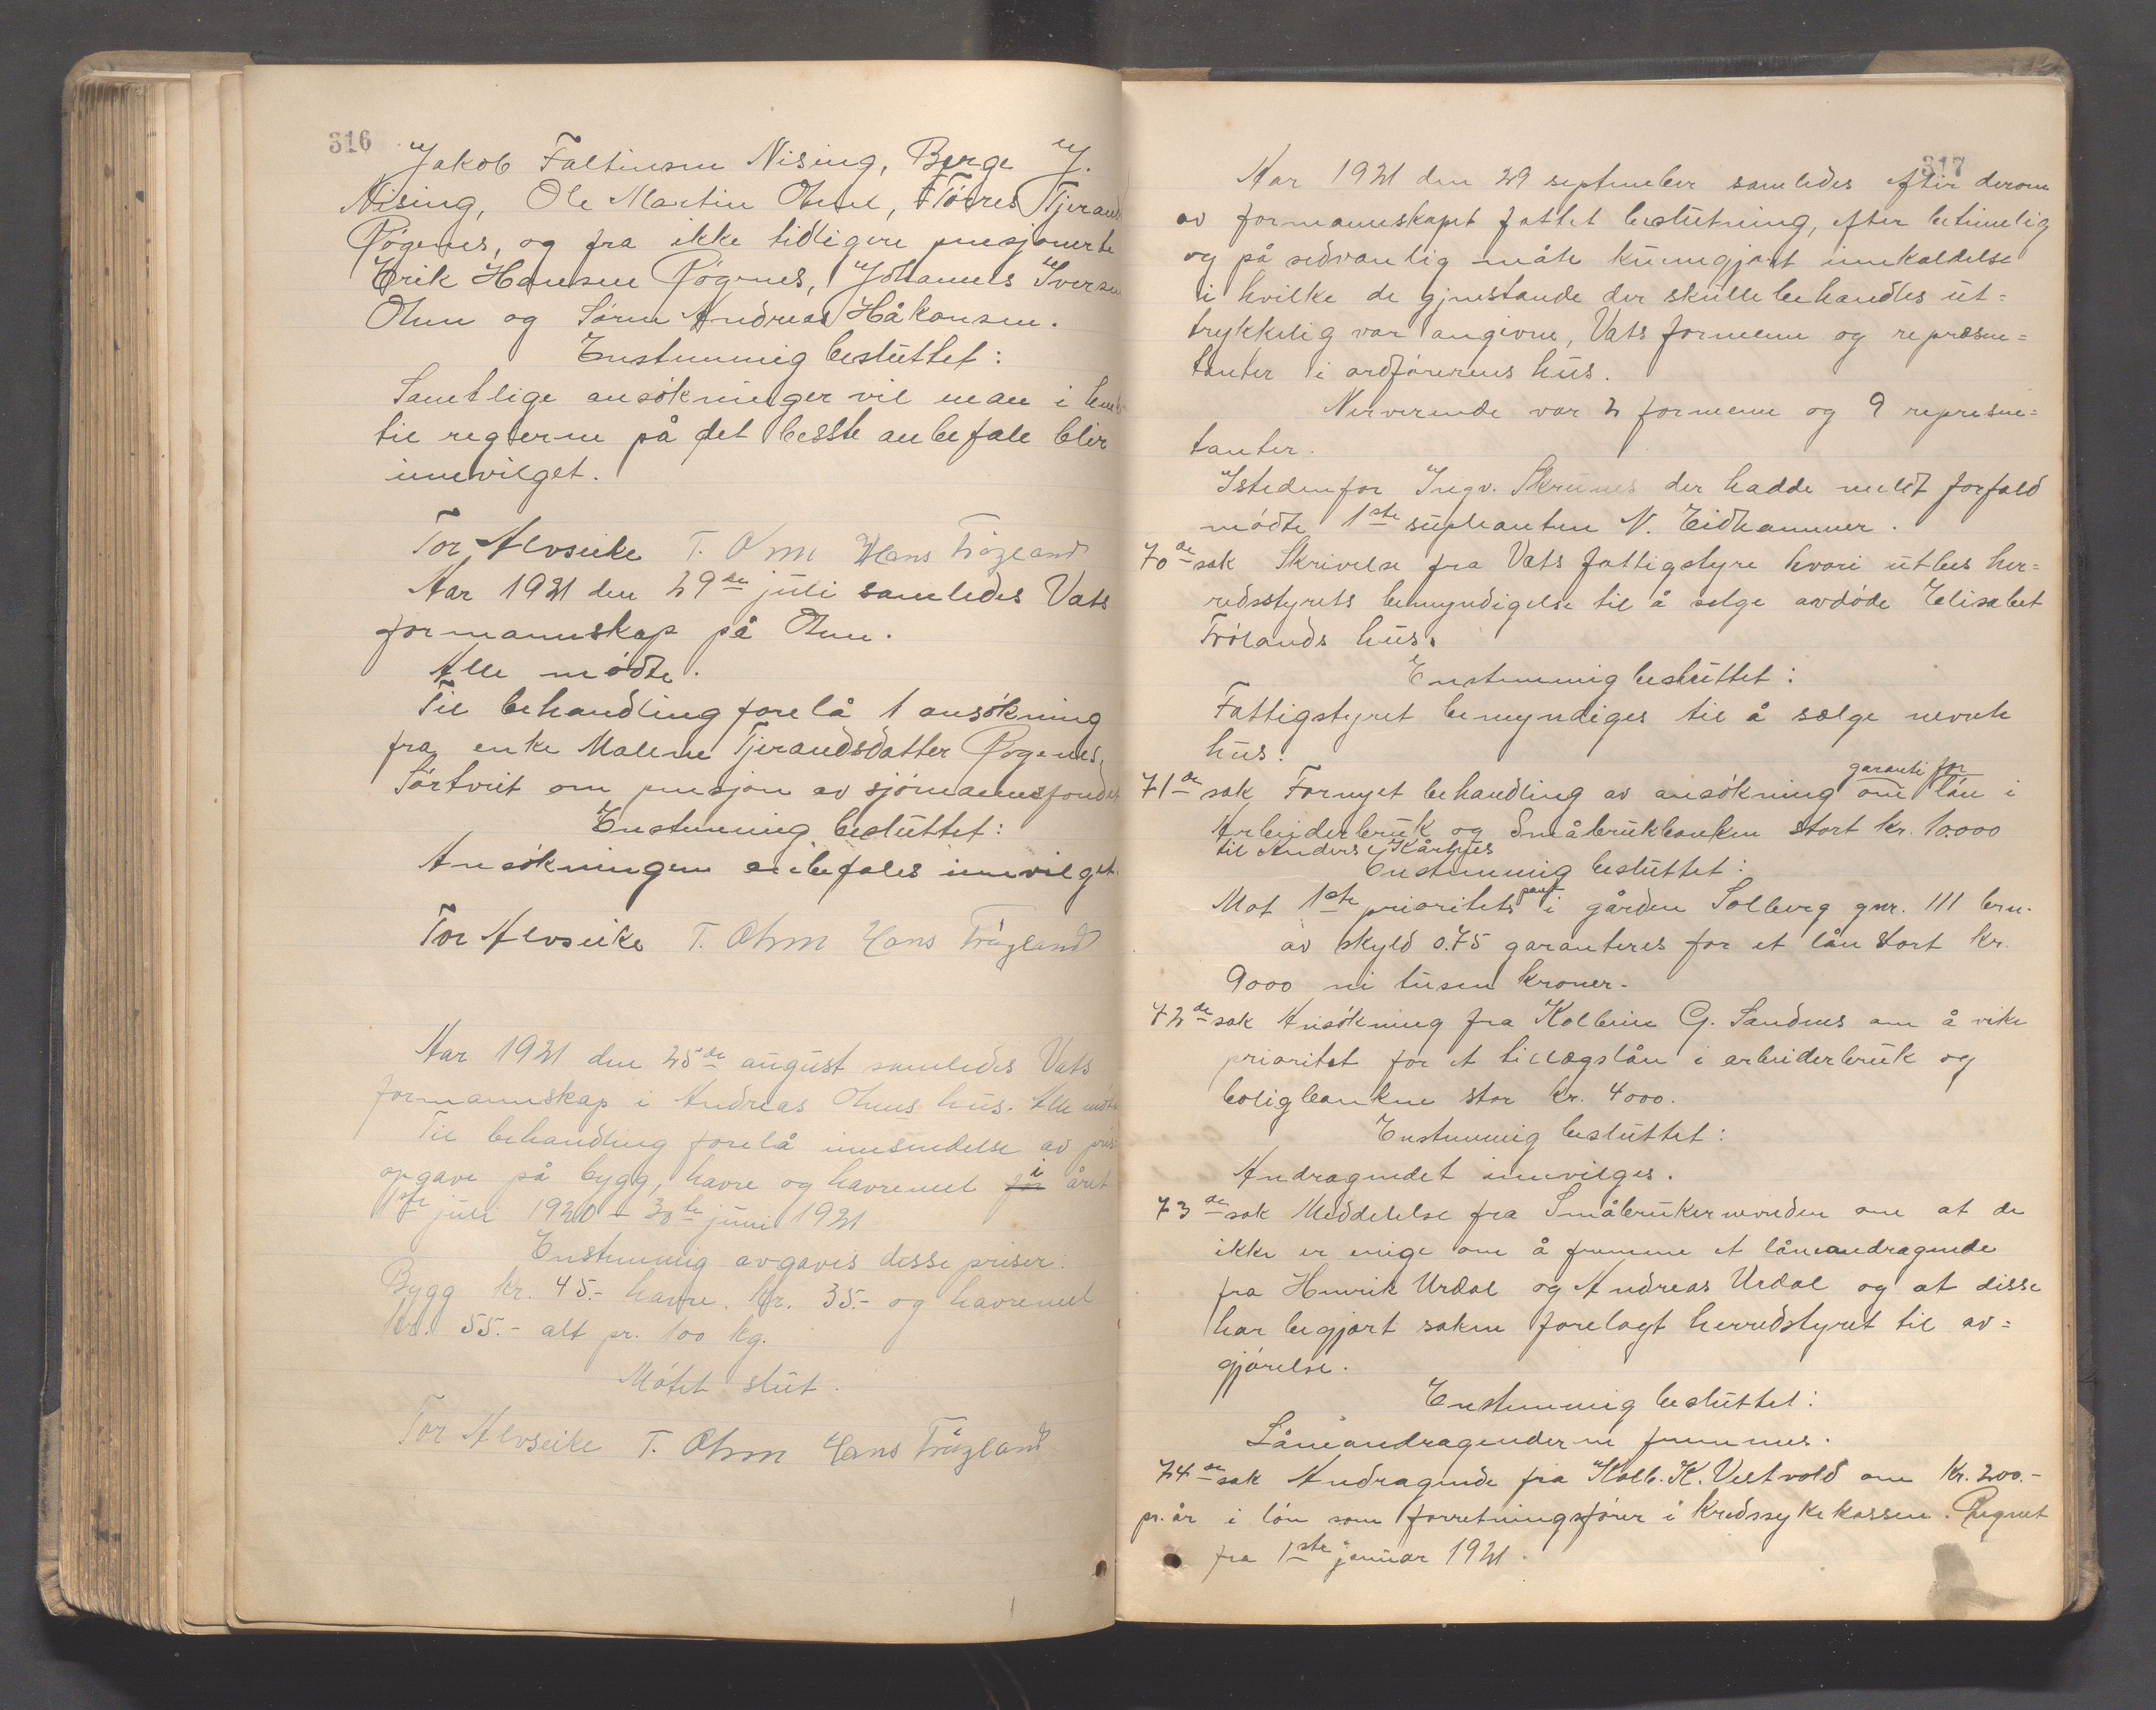 316
Jakob Faltinsen Nising, Berge J.
Nising, Ole Martin Ohm, Tórres Tjerand
Røgenes, og fra ikke tidligere pensjonerte
Erik Hansen Røgenes, Johannes Iversen
Ohm og Sørm Andreas Håkonsen.
Enstemmig besluttet:
Samtlige ansökninger vil man i hen
til reglerne på det beste anbefale blir
innvilget.
Tor Alvseike T. Ohm Hans Frøyland
Aar 1921 den 29de juli samledes Vats
formannskap på Ohm.
Alle mödte.
Til behandling forelå 1 ansökning
fra enke Malene Tjerandsdatter Røgenes,
Sörtveit om pensjon av sjömannsfondet
Enstemmig besluttet:
Ansökningen anbefales innvilget.
Tor Alvseike T. Ohm Hans Frøyland
Aar 1921 den 25de august samledes Vats
formannskap i Andreas Ohms hus. Alle mödte
Til behandling forelå innsendelse av pris
opgave på bygg, havre og havremel for i året
1ste juli 1920 - 30te juni 1921
Enstemmig avgaves disse priser.
Bygg kr. 45.- havre kr. 35.- og havremel
kr. 55.- alt pr. 100 kg.
Mötet slut.
Tor Alvseike T. Ohm Hans Frøyland
317
Aar 1921 den 29 september samledes efter derom
av formannskapet fattet beslutning, efter betimelig
og på sedvanlig måte kunngjort innkaldelse
i hvilke de gjenstande der skulle behandles ut=
trykkelig var angivne, Vats formenn og represen=
tanter i ordförerens hus.
Nerverende var 2 formenn og 9 represen=
tanter.
Istedenfor Ingv. Skrunes der hadde meldt forfald
mödte 1ste supleanten N. Eidhammer.
70de sak Skrivelse fra Vats fattigstyre hvori utbes her=
redsstyrets bemyndigelse til å selge avdöde Elisabet
Frölands hus.
Enstemmig besluttet:
Fattigstyret bemyndiges til å sælge nevnte
hus.
garanti for
71de sak Fornyet behandling av ansökning om lån i
Arbeiderbruk og Småbrukbanken stort kr. 10.000
til Anders Kårhus
Enstemmig besluttet:
Mot 1ste prioritets pant i gården Solberg gnr. 111 brn.
av skyld 0.75 garanteres for et lån stort kr.
9000 ni tusen kroner.
72de sak Ansökning fra Kolbein G. Sandnes om å vike
prioritet for et tillægslån i arbeiderbruk og
boligbanken stor kr. 4000.
Enstemmig besluttet:
Andragendet innvilges.
73de sak Meddelelse fra Småbrukernevnden om at de
ikke er enige om å fremme et låneandragende
fra Henrik Urdal og Andreas Urdal og at disse
har begjært saken forelagt herredstyret til av=
gjörelse.
Enstemmig besluttet:
Låneandragenderne fremmes.
74de sak Andragende fra Kolb. K. Vestvold om kr. 200.-
pr. år i lön som forretningsförer i kredssykekassen. Regnet
fra 1ste januar 1921.